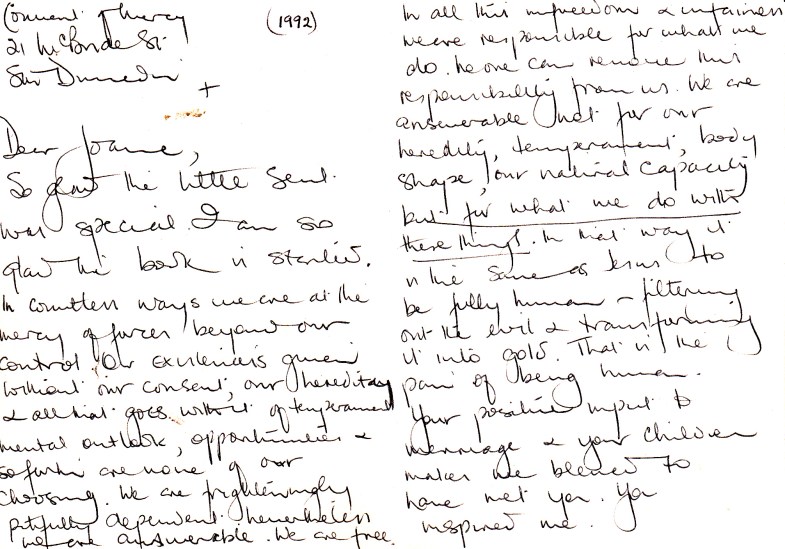 Convent of Mercy
(1992)
21 McBride St.
Sth Dunedin
+
Dear Joanne,
So glad the little Sem.
was special. I am so
glad the book is started.
In countless ways we are at the
mercy of forces beyond our
control. Our existence is given
without our consent, our hereditary
& all that goes with it of temperament
mental outlook, opportunities &
so forth are none of our
choosing. We are frighteningly
pitifully dependent. Nevertheless
we are answerable. We are free.
In all this unfreedom & unfairness
we are responsible for what we
do. No one can remove this
responsibility from us. We are
answerable not for our
heredity, temperament, body
shape, our natural capacity
but for what we do with
these things. In that way it
is the same as Jesus to
be fully human – filtering
out the evil & transforming
it into gold. That is the
pain of being human.
Your positive input to
marriage & your children
makes me blessed to
have met you. You
inspired me.